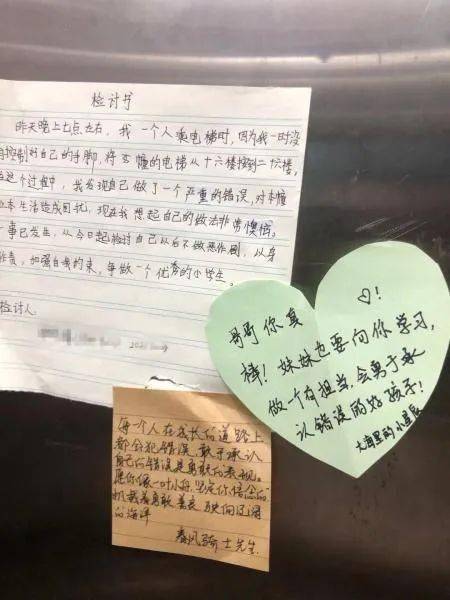 检讨书
昨天晚上七点左右，我一个人乘电梯时，因为我一时没
控制好自己的手脚，将5幢的电梯从十六楼按到二十六楼。
在这个过程中，我发现自己做了一个严重的错误，对本幢
业本生活造成困扰，现在我想起自己的做法非常懊悔。
事已发生，从今日起检讨自己以后不做恶作剧，以身
作责，加强自我约束，争做一个优秀的小学生。
检讨人
哥哥你真
棒！妹妹也要向你学习，
做一个有担当，会勇于承
认错误的好孩子！
大海里的小星辰
每一个人在成长的道路上
都会犯错误，敢于承认
自己的错误是勇敢的表现。
愿你像一叶小舟，坚定你信念的
帆载着勇敢 善良 驶向辽阔
的海洋
春风骑士先生